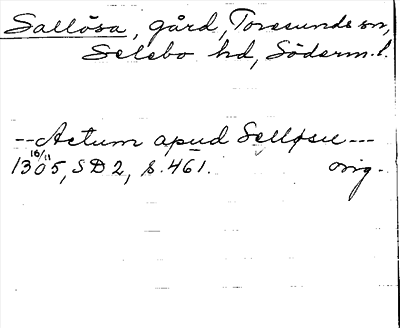 Sallösa, gård, Toresunds sn,
Selebo hd, Söderm.l.
-- Actum apud Selløsu ---
16/11
1305, SD2, s. 461. orig.